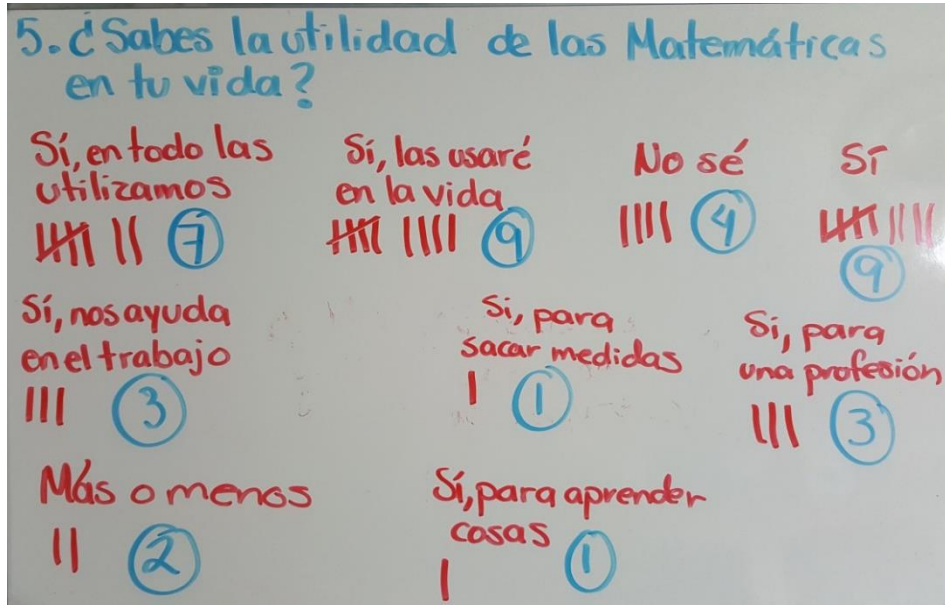 5. ¿Sabes la utilidad de las Matemáticas
en tu vida?
Sí, en todo las
utilizamos
7
Sí, las usaré
en la vida
9
No sé
4
Sí
9
Sí, nos ayuda
en el trabajo
3
Si, para
sacar medidas
1
Si, para
una profesión
3
Más o menos
2
Sí, para aprender
cosas
1